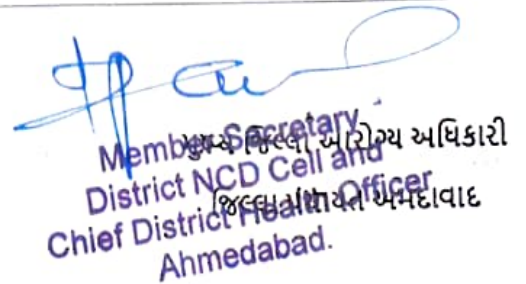 Member Secretary
District NCD Cell and
Chief District Health Officer
Ahmedabad.
મુખ્ય જિલ્લા આરોગ્ય અધિકારી
જિલ્લા પંચાયત અમદાવાદ